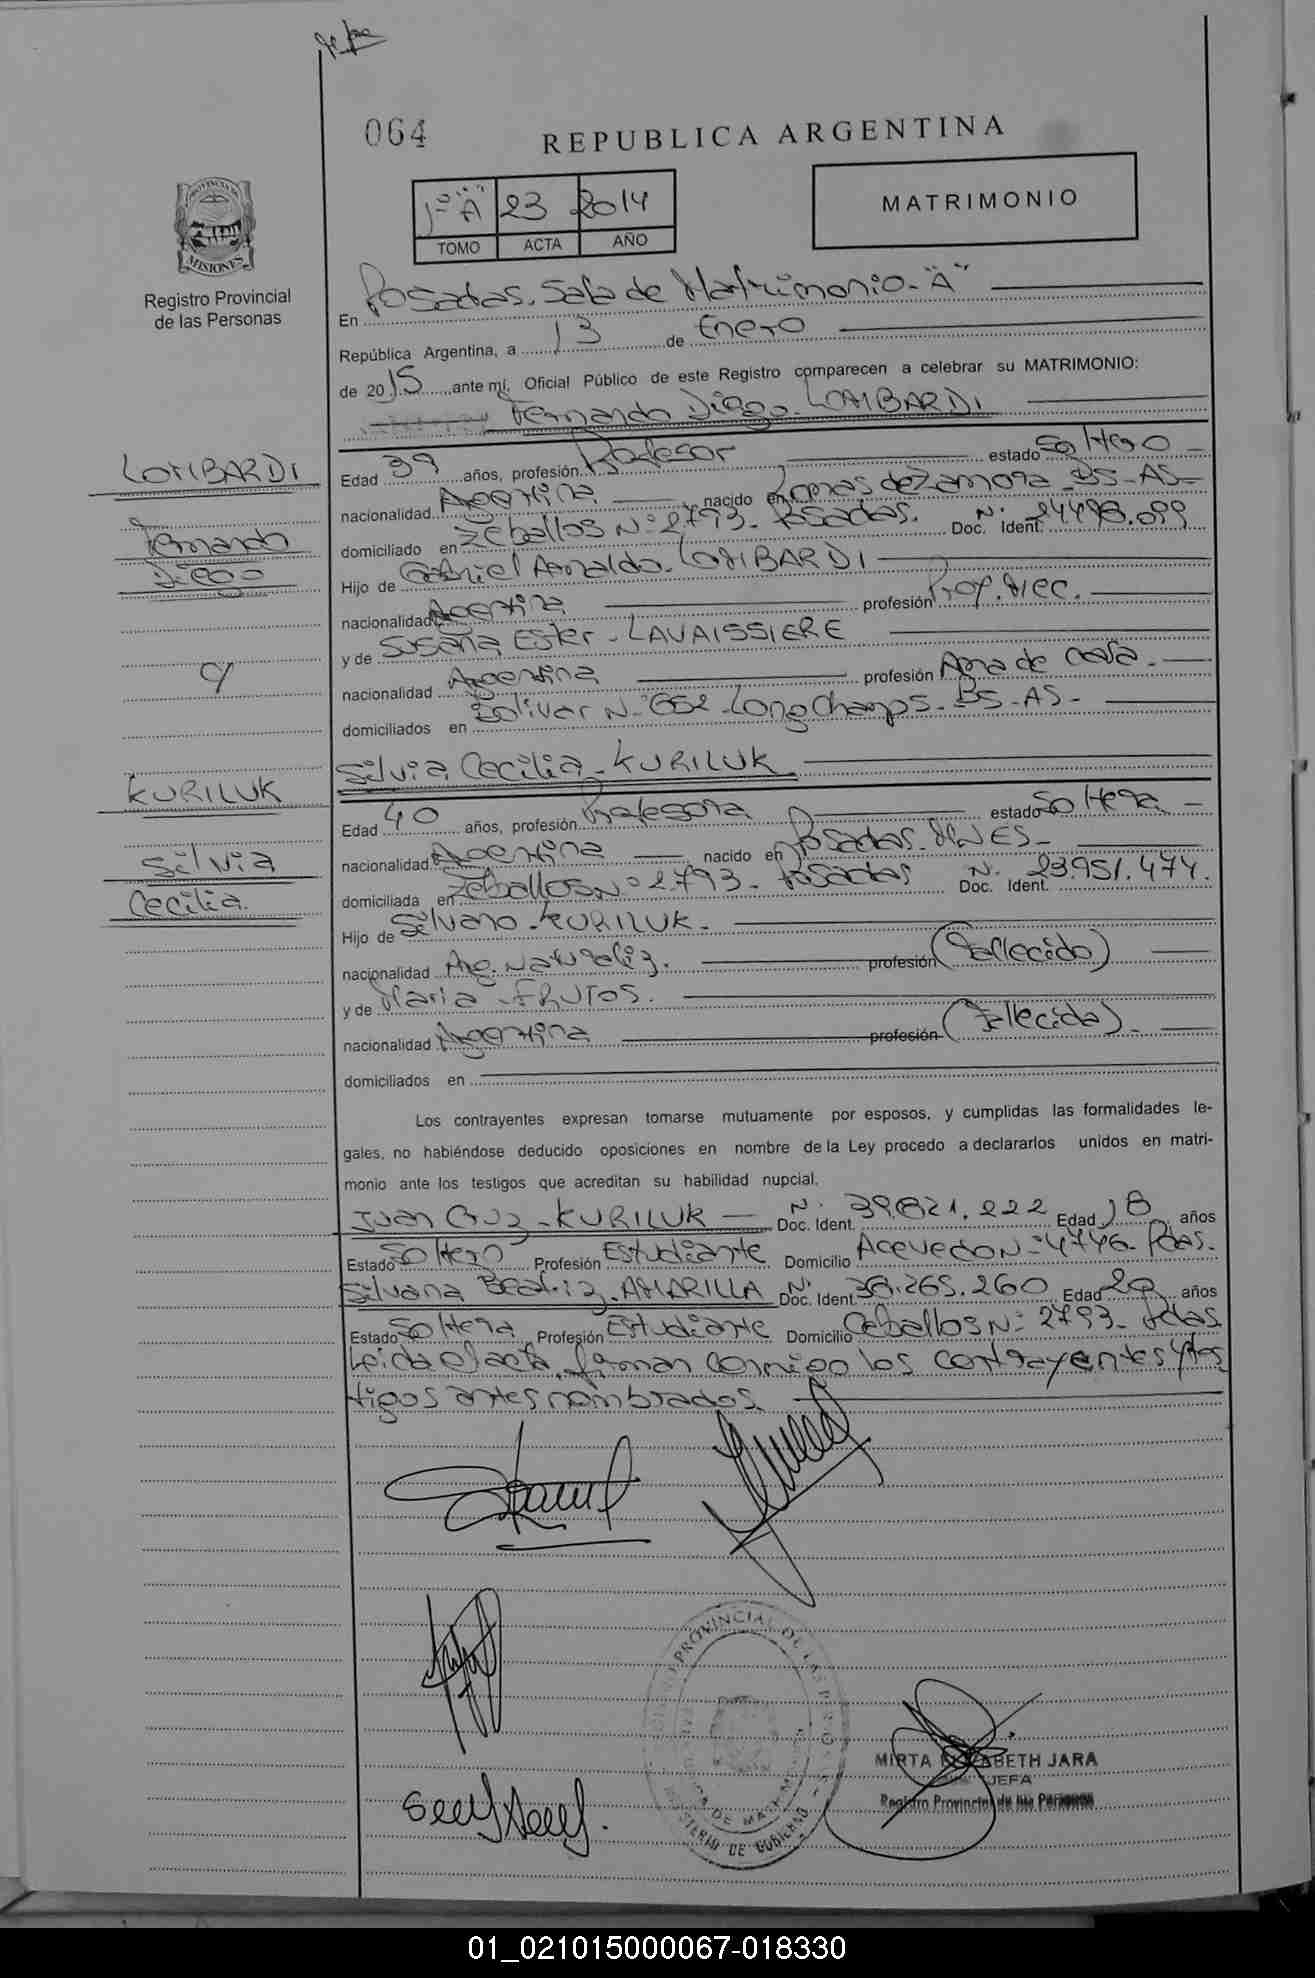 064
REPUBLICA ARGENTINA
1º "A" 23 2014
TOMO ACTA AÑO
MATRIMONIO
PROVINCIA DE
MISIONES
Registro Provincial
de las Personas
En Posadas. Sala de Matrimonio - "A"
República Argentina, a 13 de Enero
de 2015 ante mí, Oficial Público de este Registro comparecen a celebrar su MATRIMONIO:
Fernando Diego - LOMBARDI
LOMBARDI
Fernando
Diego
c/
KURILUK
Silvia
Cecilia
Edad 39 años, profesión Profesor estado Soltero
nacionalidad Argentina nacido en Lomas de Zamora - BS - AS -
domiciliado en Zeballos Nº 2793 - Posadas. Doc. Ident. Nº 24498.099
Hijo de Gabriel Arnaldo - LOMBARDI
nacionalidad Argentina profesión Prof. Mec.
y de Susana Ester - LAVAISSIERE
nacionalidad Argentina profesión Ama de casa.
domiciliados en Bolivar Nº 652 - Longchamps - BS - AS -
Silvia Cecilia - KURILUK
Edad 40 años, profesión Profesora estado Soltera
nacionalidad Argentina nacido en Posadas - MNES -
domiciliada en Zeballos Nº 2793 - Posadas Doc. Ident. Nº 23.951.474.
Hijo de Silvano - KURILUK.
nacionalidad Arg. Naturaliz. profesión (Fallecido)
y de Maria - FRUTOS.
nacionalidad Argentina profesión (Fallecida)
domiciliados en
Los contrayentes expresan tomarse mutuamente por esposos, y cumplidas las formalidades le-
gales, no habiéndose deducido oposiciones en nombre de la Ley procedo a declararlos unidos en matri-
monio ante los testigos que acreditan su habilidad nupcial.
Juan Cruz - KURILUK Doc. Ident. Nº 39.821.222 Edad 18 años
Estado Soltero Profesión Estudiante Domicilio Acevedo Nº 4746 - Pdas.
Silvana Beatriz - AMARILLA Doc. Ident. Nº 38.265.260 Edad 20 años
Estado Soltera Profesión Estudiante Domicilio Ceballos Nº 2793 - Pdas
Leida el acta, firman conmigo los contrayentes y tes
tigos antes nombrados.
MIRTA ELIZABETH JARA
JEFA
Registro Provincial de las Personas
01_021015000067-018330